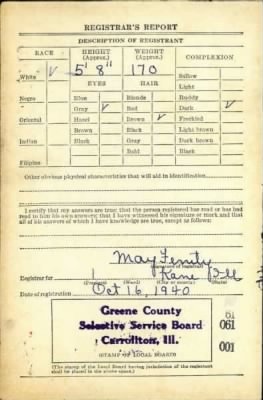 REGISTRAR'S REPORT
DESCRIPTION OF REGISTRANT
RACE HEIGHT (Approx.) WEIGHT (Approx.) COMPLEXION
White ✓ 5' 8" 170 Sallow
EYES HAIR Light
Negro Blue Blonde Ruddy
Gray ✓ Red Dark ✓
Oriental Hazel Brown ✓ Freckled
Brown Black Light brown
Indian Black Gray Dark brown
Bald Black
Filipino
Other obvious physical characteristics that will aid in identification
I certify that my answers are true; that the person registered has read or has had read to him his own answers; that I have witnessed his signature or mark and that all of his answers of which I have knowledge are true, except as follows:
May
Registrar for 1 Kane Ill
(Precinct) (Ward) (City or county) (State)
Date of registration Oct 16, 1940
Greene County 61
Selective Service Board 061
Carrollton, Ill. 001
(STAMP OF LOCAL BOARD)
(The stamp of the Local Board having jurisdiction of the registrant
shall be placed in the above space.)